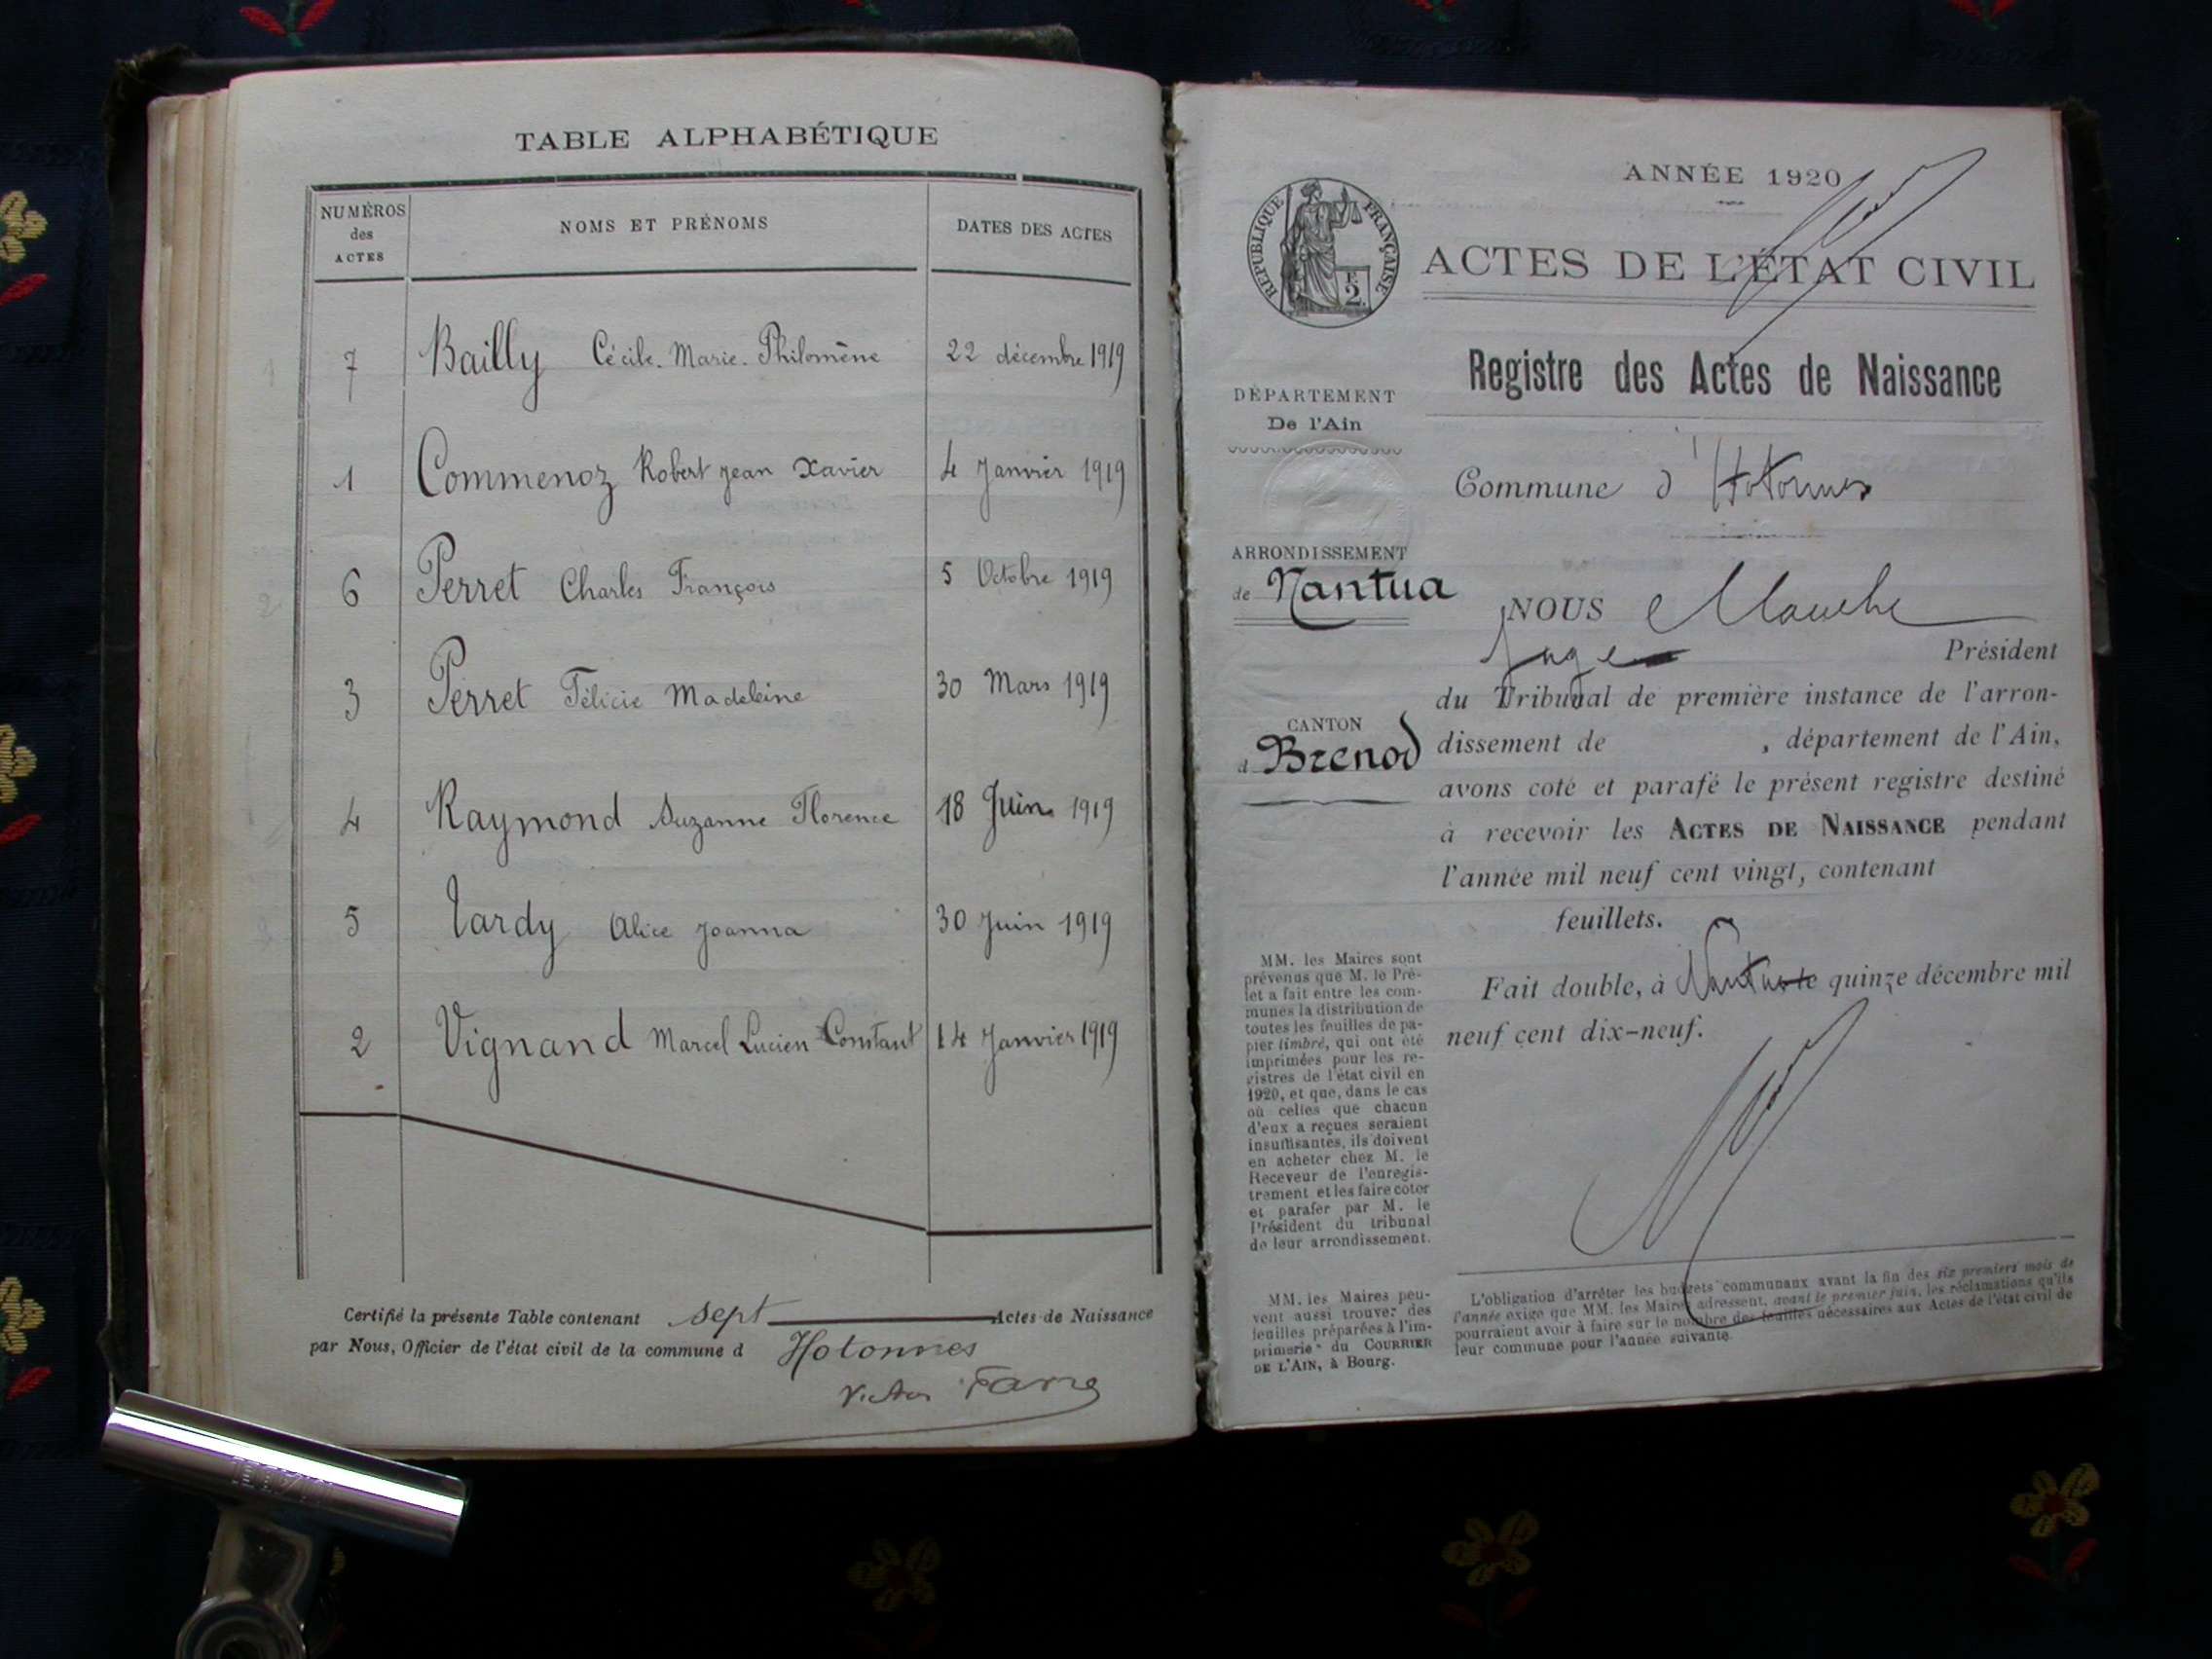 TABLE ALPHABÉTIQUE
NUMÉROS
des
ACTES
NOMS ET PRÉNOMS
DATES DES ACTES
7 Bailly Cécile. Marie. Philomène 22 décembre 1919
1 Commenoz Robert Jean Xavier 4 Janvier 1919
6 Perret Charles François 5 Octobre 1919
3 Perret Félicie Madeleine 30 Mars 1919
4 Raymond Suzanne Florence 18 Juin 1919
5 Tardy Alice Joanna 30 Juin 1919
2 Vignand Marcel Lucien Constant 14 Janvier 1919
Certifié la présente Table contenant sept Actes de Naissance
par Nous, Officier de l'état civil de la commune d Hotonnes
Victor Farre
ANNÉE 1920
RÉPUBLIQUE FRANÇAISE
2
ACTES DE L'ÉTAT CIVIL
Registre des Actes de Naissance
DÉPARTEMENT
De l'Ain
Commune d'Hotonnes
ARRONDISSEMENT
de Nantua
CANTON
d Brenod
NOUS
Juge Président
du Tribunal de première instance de l'arron-
dissement de , département de l'Ain,
avons coté et parafé le présent registre destiné
à recevoir les ACTES DE NAISSANCE pendant
l'année mil neuf cent vingt, contenant
feuillets.
Fait double, à Nantua le quinze décembre mil
neuf cent dix-neuf.
MM. les Maires sont
prévenus que M. le Pré-
fet a fait entre les com-
munes la distribution de
toutes les feuilles de pa-
pier timbré, qui ont été
imprimées pour les re-
gistres de l'état civil en
1920, et que, dans le cas
où celles que chacun
d'eux a reçues seraient
insuffisantes, ils doivent
en acheter chez M. le
Receveur de l'enregis-
trement et les faire coter
et parafer par M. le
Président du tribunal
de leur arrondissement.
MM. les Maires peu-
vent aussi trouver des
feuilles préparées à l'im-
primerie du COURRIER
DE L'AIN, à Bourg.
L'obligation d'arrêter les budgets communaux avant la fin des six premiers mois de
l'année exige que MM. les Maires adressent, avant le premier juin, les réclamations qu'ils
pourraient avoir à faire sur le nombre des feuilles nécessaires aux Actes de l'état civil de
leur commune pour l'année suivante.